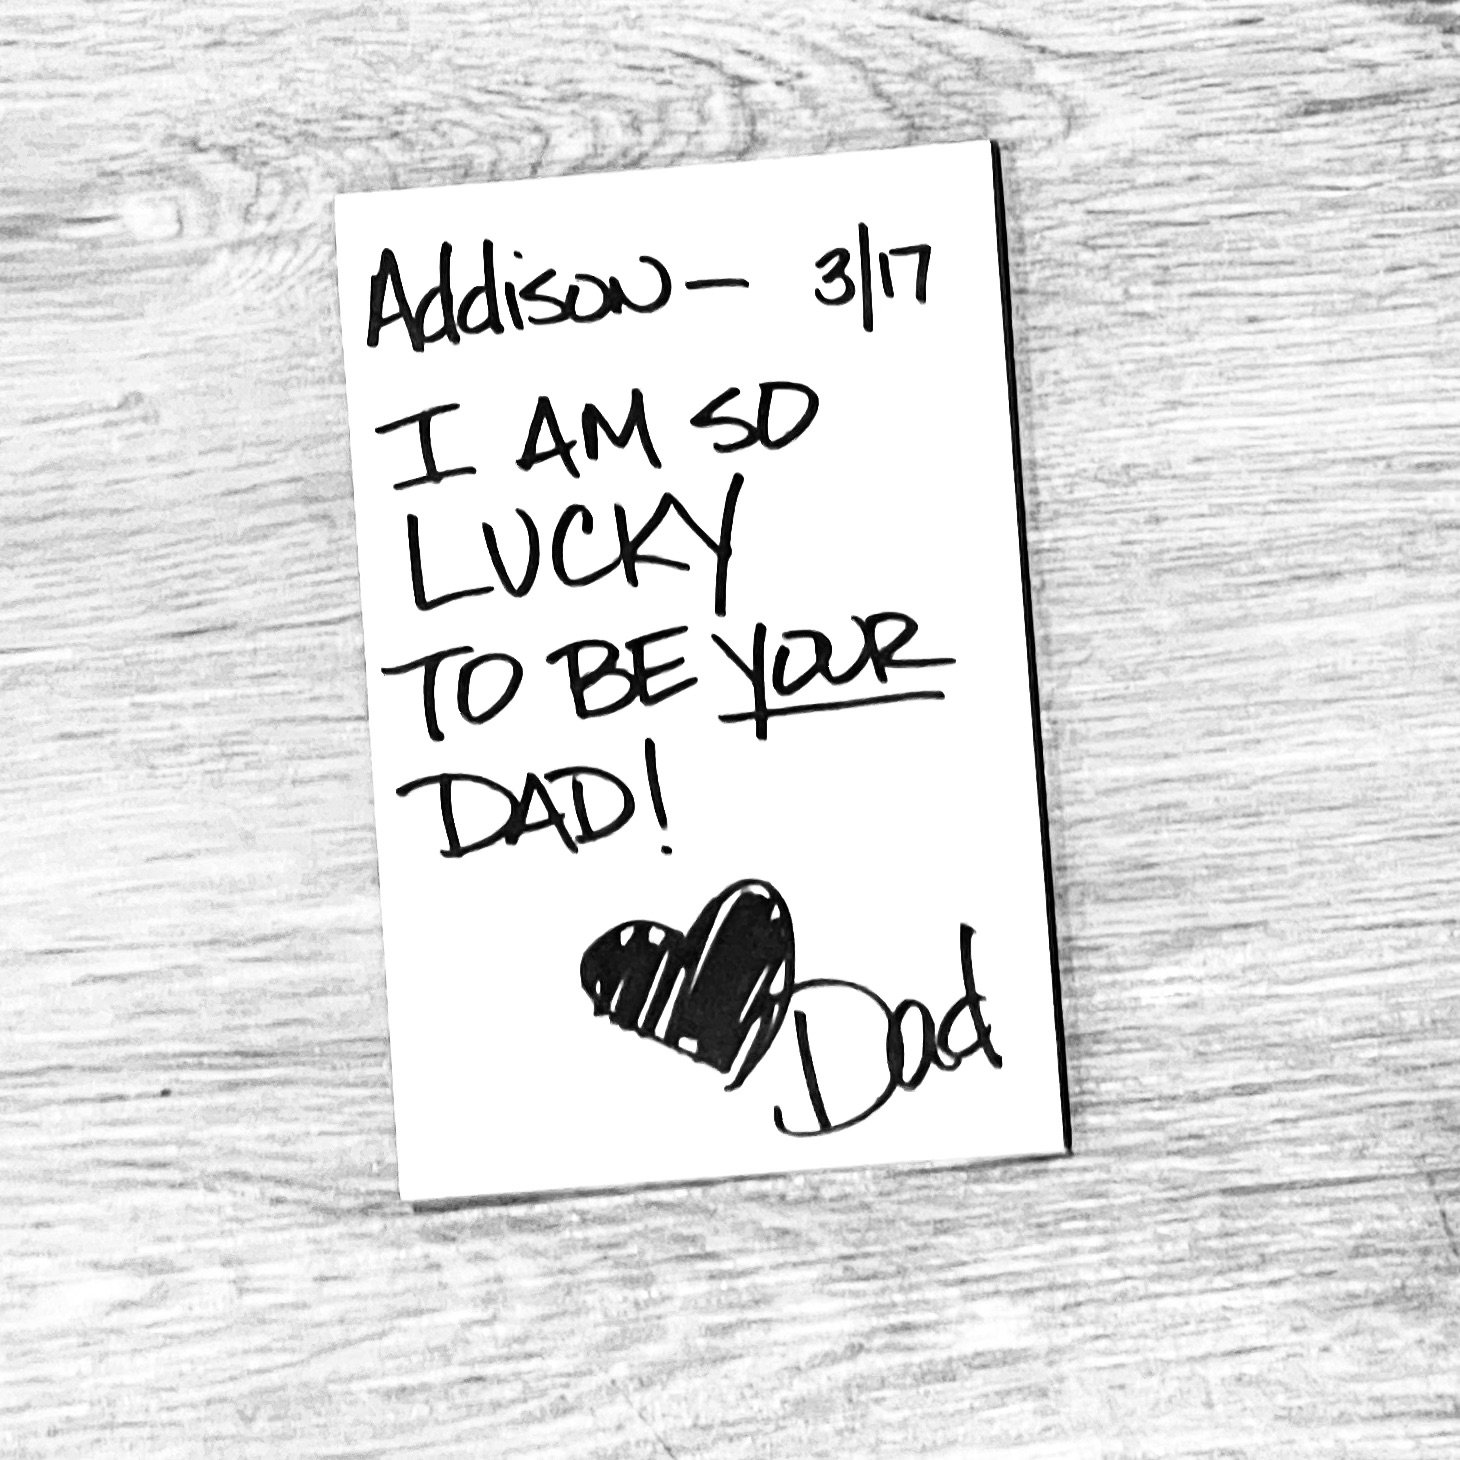 Addison— 3/17
I AM SO
LUCKY
TO BE YOUR
DAD!
Dad